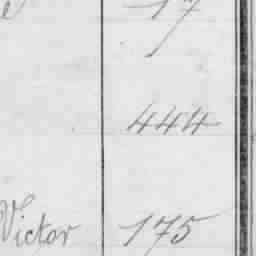 17
444
Victor 175